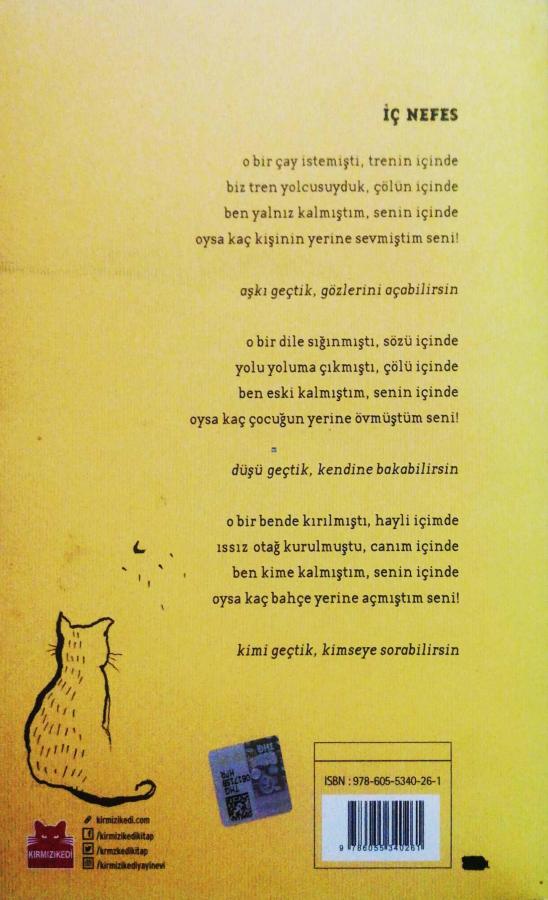 İÇ NEFES
o bir çay istemişti, trenin içinde
biz tren yolcusuyduk, çölün içinde
ben yalnız kalmıştım, senin içinde
oysa kaç kişinin yerine sevmiştim seni!
aşkı geçtik, gözlerini açabilirsin
o bir dile sığınmıştı, sözü içinde
yolu yoluma çıkmıştı, çölü içinde
ben eski kalmıştım, senin içinde
oysa kaç çocuğun yerine övmüştüm seni!
düşü geçtik, kendine bakabilirsin
o bir bende kırılmıştı, hayli içimde
ıssız otağ kurulmuştu, canım içinde
ben kime kalmıştım, senin içinde
oysa kaç bahçe yerine açmıştım seni!
kimi geçtik, kimseye sorabilirsin
ISBN : 978-605-5340-26-1
9 786055 340261
kirmizikedi.com
/kirmizikedikitap
/krmzkedikitap
/kirmizikediyayinevi
KIRMIZIKEDİ